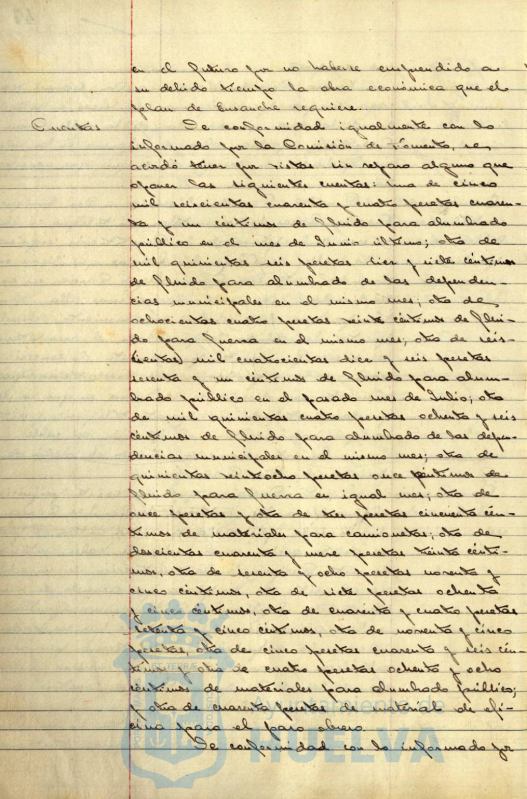 en el futuro por no haberse emprendido a
su debido tiempo la obra económica que el
plan de Ensanche requiere.
Cuentas De conformidad igualmente con lo
informado por la Comisión de Fomento, se
acordó tener por vistas sin reparo alguno que
oponer las siguientes cuentas: una de cinco
mil seiscientas cuarenta y cuatro pesetas cuaren-
ta y un céntimos de fluido para alumbrado
público en el mes de Junio último; otra de
mil quinientas seis pesetas diez y siete céntimos
de fluido para alumbrado de las dependen-
cias municipales en el mismo mes; otra de
ochocientas cuatro pesetas veinte céntimos de flui-
do para Guerra en el mismo mes; otra de
mil cuatrocientas diez y seis pesetas
sesenta y un céntimos de fluido para alum-
brado público en el pasado mes de Julio; otra
de mil quinientas cuatro pesetas ochenta y seis
céntimos de fluido para alumbrado de las depen-
dencias municipales en el mismo mes; otra de
quinientas veintiocho pesetas once céntimos de
fluido para Guerra en igual mes; otra de
once pesetas y otra de tres pesetas cincuenta cén-
timos de materiales para camionetas; otra de
doscientas cuarenta y nueve pesetas treinta cénti-
mos, otra de sesenta y ocho pesetas noventa y
cinco céntimos, otra de siete pesetas ochenta
y cinco céntimos, otra de cuarenta y cuatro pesetas
setenta y cinco céntimos, otra de noventa y cinco
pesetas, otra de cinco pesetas cuarenta y seis cén-
timos y otra de cuatro pesetas ochenta y ocho
céntimos de materiales para alumbrado público;
y otra de cuarenta pesetas de material de ofi-
cina para el paro obrero.
De conformidad con lo informado por
HUELVA